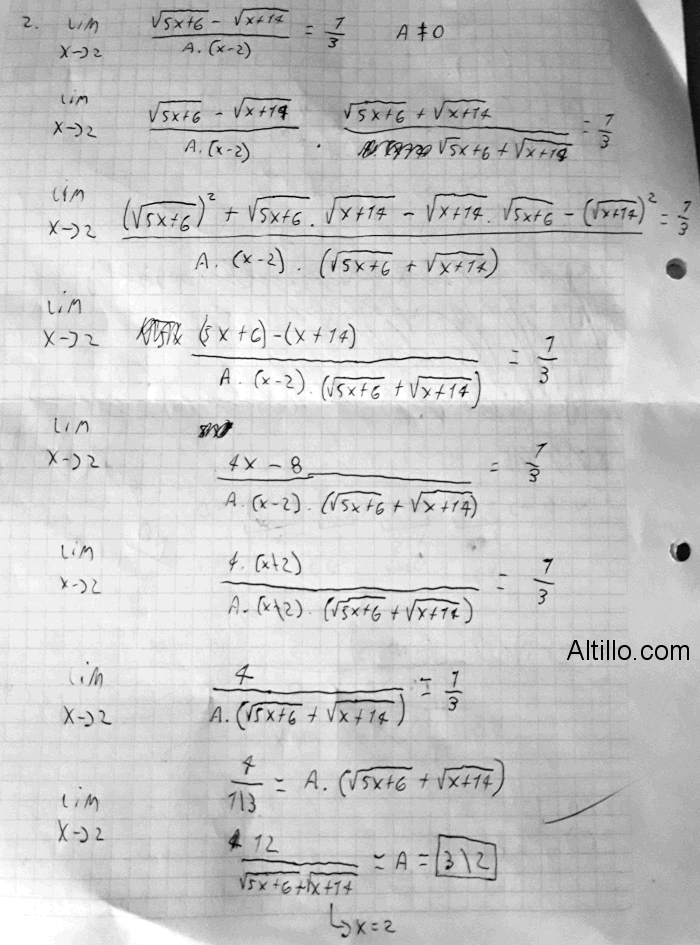 2. lim x→2 (√(5x+6) - √(x+14)) / (A.(x-2)) = 1/3 A ≠ 0
lim x→2 (√(5x+6) - √(x+14)) / (A.(x-2)) . (√(5x+6) + √(x+14)) / (√(5x+6) + √(x+14)) = 1/3
lim x→2 ((√(5x+6))² + √(5x+6) . √(x+14) - √(x+14) . √(5x+6) - (√(x+14))²) / (A.(x-2).(√(5x+6) + √(x+14))) = 1/3
lim x→2 ((5x+6)-(x+14)) / (A.(x-2).(√(5x+6) + √(x+14))) = 1/3
lim x→2 (4x-8) / (A.(x-2).(√(5x+6) + √(x+14))) = 1/3
lim x→2 (4.(x-2)) / (A.(x-2).(√(5x+6) + √(x+14))) = 1/3
Altillo.com
lim x→2 4 / (A.(√(5x+6) + √(x+14))) = 1/3
4 / (1/3) = A.(√(5x+6) + √(x+14))
lim x→2 12 / (√(5x+6) + √(x+14)) = A = 3\2
↳ x=2